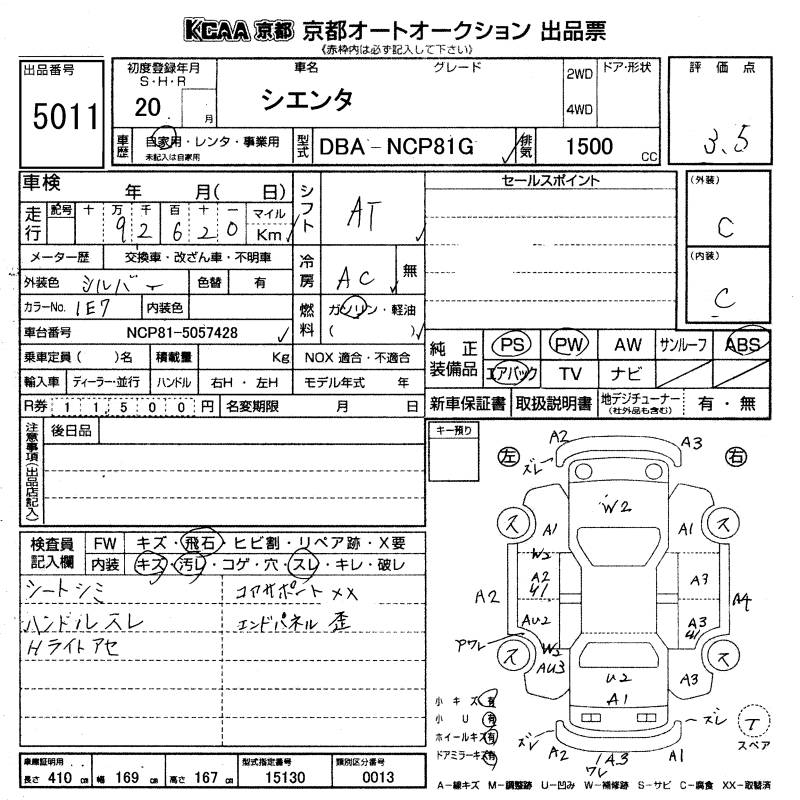 KCAA 京都 京都オートオークション 出品票
《赤枠内は必ず記入して下さい》
出品番号
5011
初度登録年月
S・H・R
20 月
車名 グレード
シエンタ
2WD
4WD
ドア・形状
評価点
3.5
車歴
自家用・レンタ・事業用
未記入は自家用
型式
DBA-NCP81G
排気
1500 CC
車検 年 月( 日)
シフト
AT
セールスポイント
(外装)
C
(内装)
C
走行
記号 十 万 千 百 十 一 マイル
9 2 6 2 0 Km
メーター歴 交換車・改ざん車・不明車
冷房
AC
無
外装色 シルバー 色替 有
カラーNo. 1E7 内装色
燃料
ガソリン・軽油
( )
車台番号 NCP81-5057428
乗車定員( )名 積載量 Kg NOX 適合・不適合
輸入車 ディーラー・並行 ハンドル 右H・左H モデル年式 年
R券 11500円 名変期限 月 日
純正装備品
PS PW AW サンルーフ ABS
エアバック TV ナビ
新車保証書 取扱説明書 地デジチューナー 有・無
(社外品も含む)
注意事項(出品店記入)
後日品
キー預り
検査員記入欄
FW キズ・飛石・ヒビ割・リペア跡・X要
内装 キズ・汚レ・コゲ・穴・スレ・キレ・破レ
シートシミ コアサポート XX
ハンドルスレ エンドパネル 歪
Hライトアセ
左 右
A2 A3
ズレ
W2
ス ス
A1 A1
W2
A2 A3
U1
A2 A4
AU2 A3
U1
Pワレ
W2
ス ス
AU3 A3
U2
A1
小キズ 有
小U 有
ホイールキズ 有
ドアミラーキズ 有
ズレ ズレ
A2 A3 A1
ワレ
T
スペア
車庫証明用
長さ 410 cm 幅 169 cm 高さ 167 cm
型式指定番号
15130
類別区分番号
0013
A-線キズ M-調整跡 U-凹み W-補修跡 S-サビ C-腐食 XX-取替済